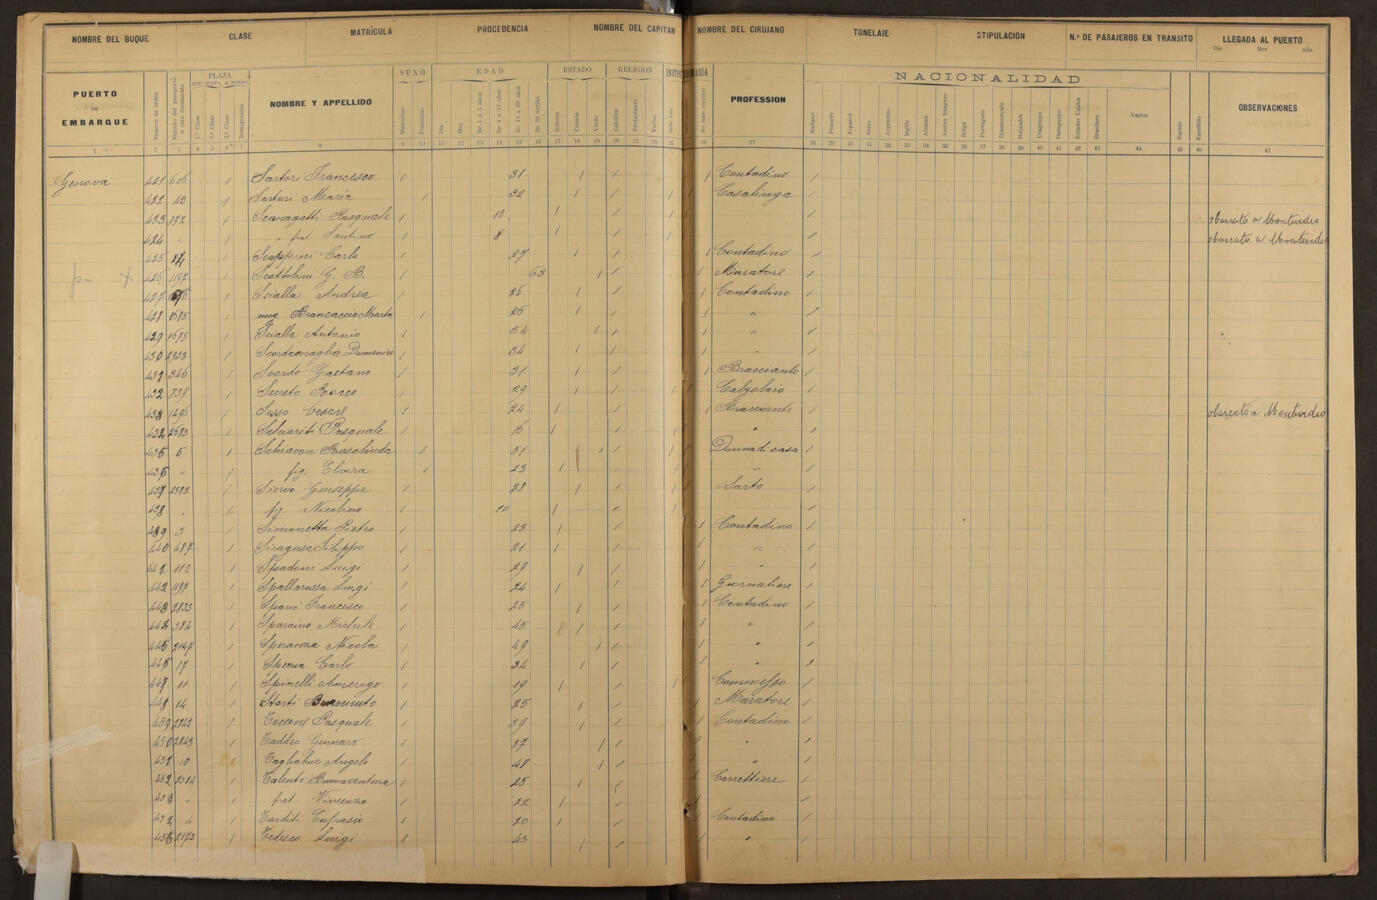 NOMBRE DEL BUQUE CLASE MATRÍCULA PROCEDENCIA NOMBRE DEL CAPITAN NOMBRE DEL CIRUJANO TONELAJE STIPULACION N.º DE PASAJEROS EN TRANSITO LLEGADA AL PUERTO
Dia Mes Año
PUERTO DE EMBARQUE Número de orden PLAZA NOMBRE Y APPELLIDO SEXO EDAD ESTADO RELIGION PROFESSION NACIONALIDAD OBSERVACIONES
1ª Clase 2ª Clase 3ª Clase Masculino Femenino Dia Mes De 1 a 3 años Soltero Casado Viudo Católico Protestante Varios Italiano Francés Español Suizo Argentino Inglés Aleman Austro Húngaro Belga Portugues Dinamarqués Holandés Uruguayo Paraguayo Estados Unidos Brasilero Varios Nacido Fallecido
Genova 421 606 / Sartori Francesco / 31 / / / Contadino /
422 43 / Sartori Maria / 32 / / / Casalinga /
423 872 / Scanagatti Pasquale / 10 / / / / sbarcato a Montevideo
424 " / " frat Santino / 8 / / / / sbarcato a Montevideo
425 / Scapparini Carlo / 27 / / / Contadino /
p- X 426 1197 / Scattolini G. B. / 63 / / / Muratore /
427 / Scialla Andrea / 26 / / / Contadino /
428 1685 / mog. Brancaccio Marta / 26 / / / " /
429 1685 / Scialla Antonio / 54 / / / " /
430 2333 / Scordamaglia Domenico / 34 / / / " /
431 346 / Scordo Gaetano / 31 / / / Bracciante /
432 839 / Secreto Rocco / 29 / / / Calzolaio /
433 1296 / Sesso Cesare / 24 / / / Bracciante / sbarcato a Montevideo
2683 / Schiariti Pasquale / 16 / / / " /
435 5 / Schiavon Rosolinda / 51 / / / Donna di casa /
436 " / fig. Elvira / 23 / / / " /
437 2383 / Siervo Giuseppe / 38 / / / Sarto /
438 " / fig. Nicolino / 10 / / / /
439 3 / Simonetta Pietro / 23 / / / Contadino /
440 487 / Siragusa Filippo / 21 / / / " /
441 112 / Spadoni Luigi / 29 / / / " /
442 1197 / Spallarossa Luigi / 24 / / / Giornaliere /
443 2833 / Spanò Francesco / 25 / / / Contadino /
384 / Sparaino Michele / 45 / / / " /
445 2147 / Speranza Nicola / 49 / / / " /
446 17 / Carlo / 34 / / / " /
447 11 / Spinelli Amerigo / 19 / / / Commesso /
448 14 / Storti / 25 / / / Muratore /
2842 / Taccone Pasquale / 39 / / / Contadino /
450 2843 / Taddeo Gennaro / 37 / / / " /
451 10 / Tagliabue Angelo / 48 / / / " /
2384 / Talento Buonaventura / 25 / / / Carrettiere /
" / frat. Vincenzo / 22 / / / /
4 / Tarditi Eufrasio / 20 / / / Contadino /
455 2173 / Tedesco Luigi / 45 / / / " /